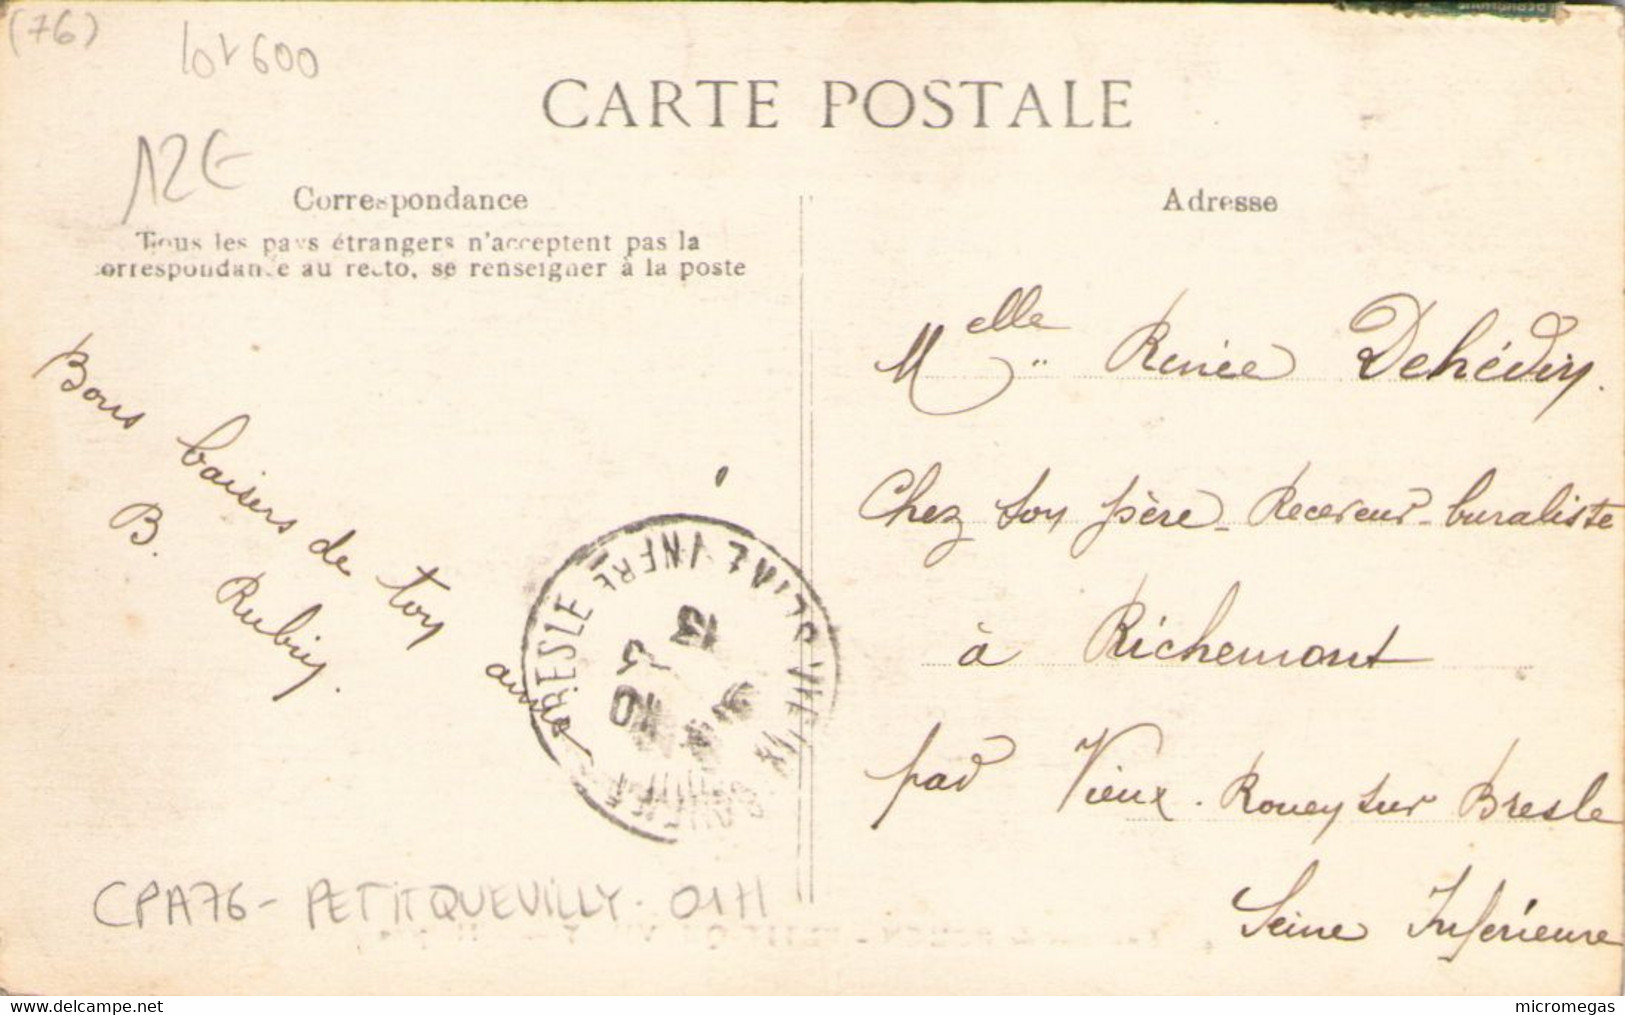 (76)
lot 600
12€
CARTE POSTALE
Correspondance
Tous les pays étrangers n'acceptent pas la
correspondance au recto, se renseigner à la poste
Bons baisers de ton
B. Rubin.
Adresse
Melle Renée Dehédin.
Chez son père - Receveur - buraliste
à Richemont
par Vieux - Rouen sur Bresle
Seine Inférieure
BRESLE
13
5
10
CPA76 - PETIT QUEVILLY - 01H
delcampe.net
micromegas